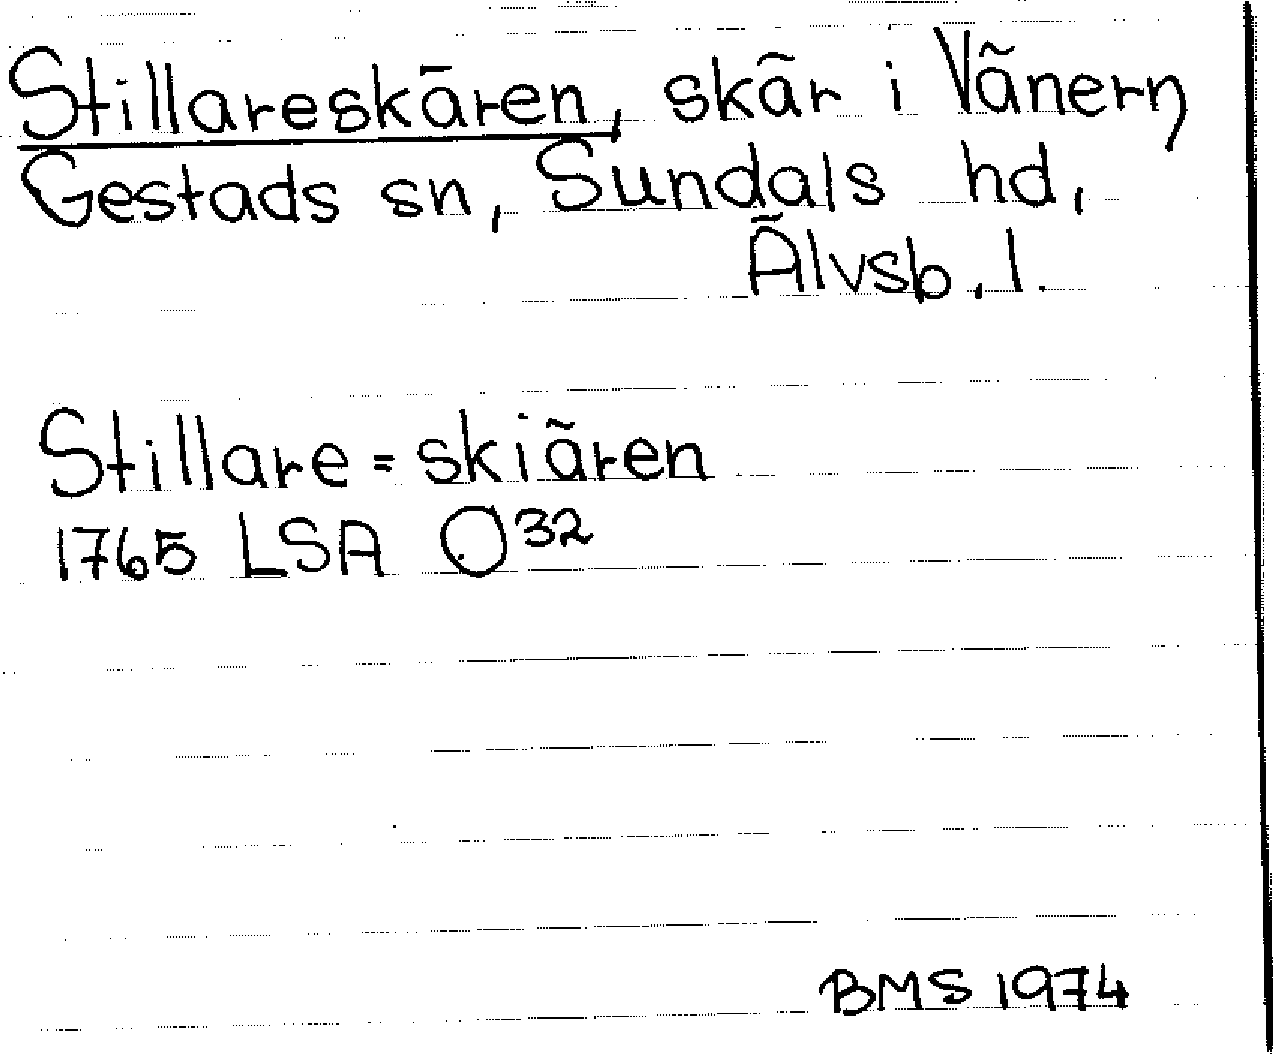 Stillareskären, skär i Vänern
Gestads sn, Sundals hd,
Älvsb. l.
Stillare=skiären
1765 LSA O32
BMS 1974